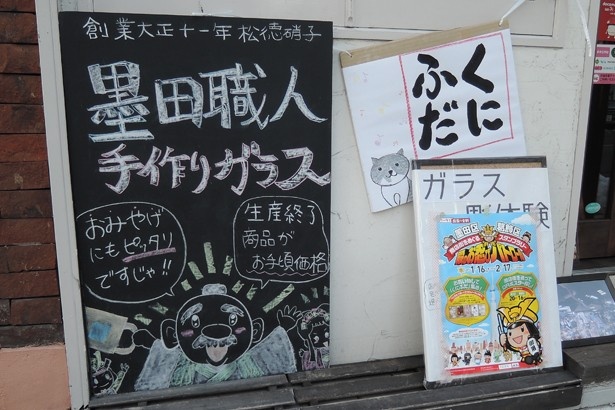 創業大正十一年 松徳硝子
墨田職人
手作りガラス
おみやげ
にもピッタリ
ですじゃ!!
生産終了
商品が
お手頃価格
ふくだに
ガラス
彫体験
墨田区
葛飾区
スタンプラリー
1.16
2.17